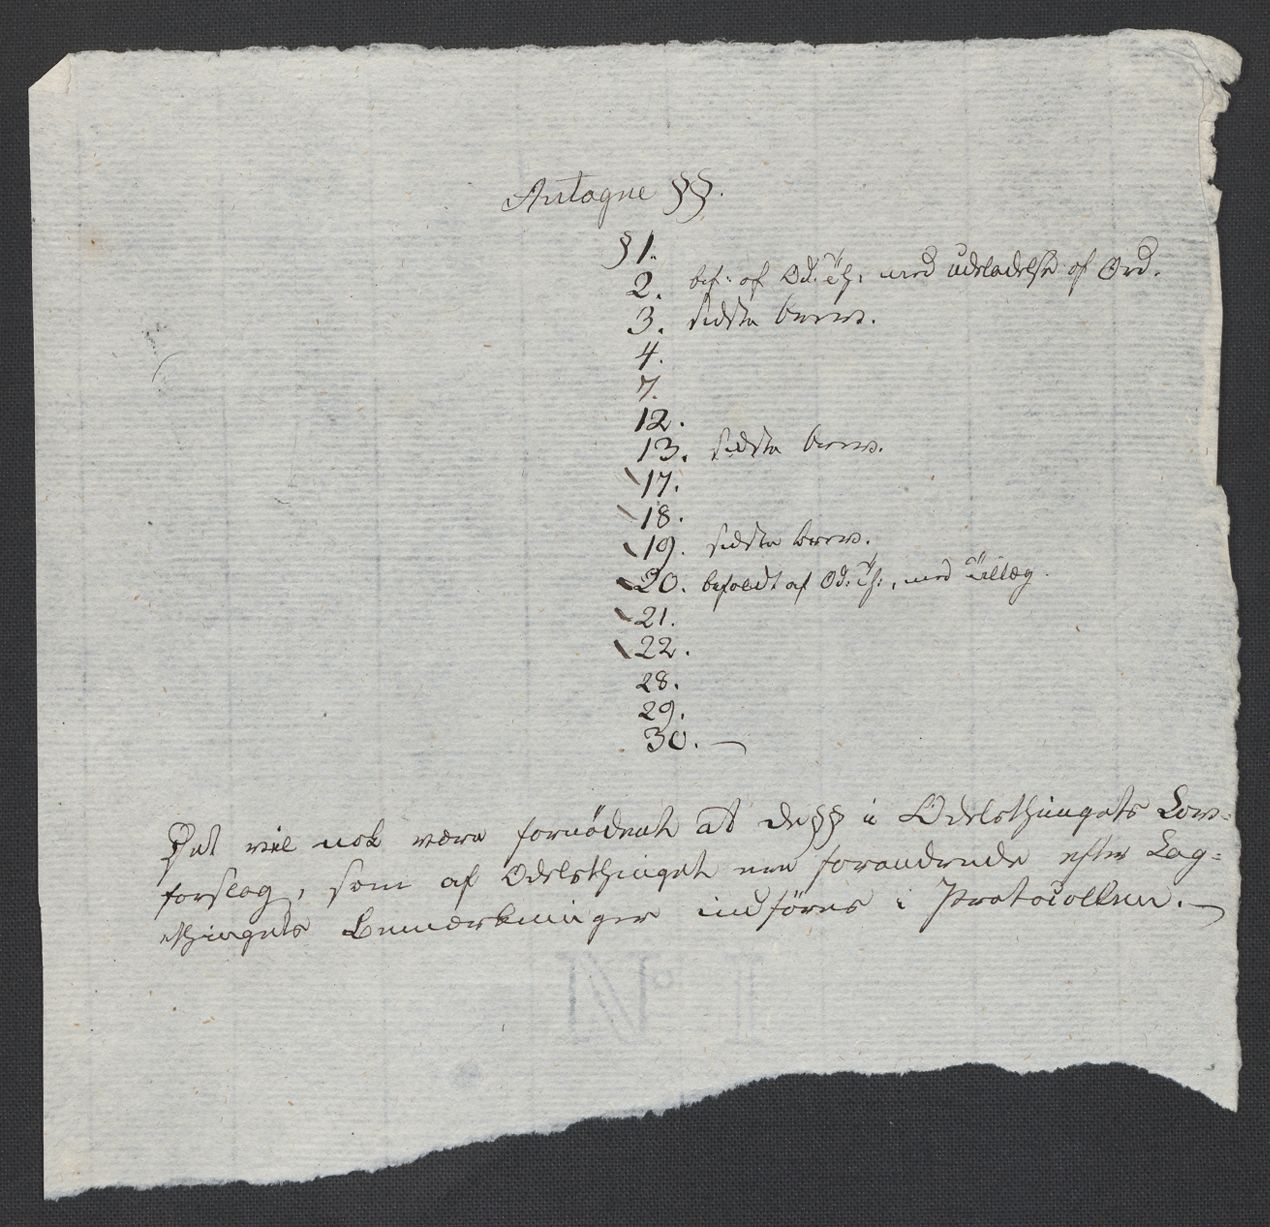 Antagne §§.
§ 1.
2. bef: af Od: th: med udeladelse af Ord.
3. sidste
4.
7.
12.
13. sidste
17.
18.
19. sidste
20. befaldt af Od: th:, med tillæg.
21.
22.
28.
29.
30. —
Det vil nok være fornödent at de §§ i Odelsthingets Lov-
forslag, som af Odelsthinget ere forandrede efter Lag-
thingets Bemærkninger indföres i Protocollen. —
№ 1